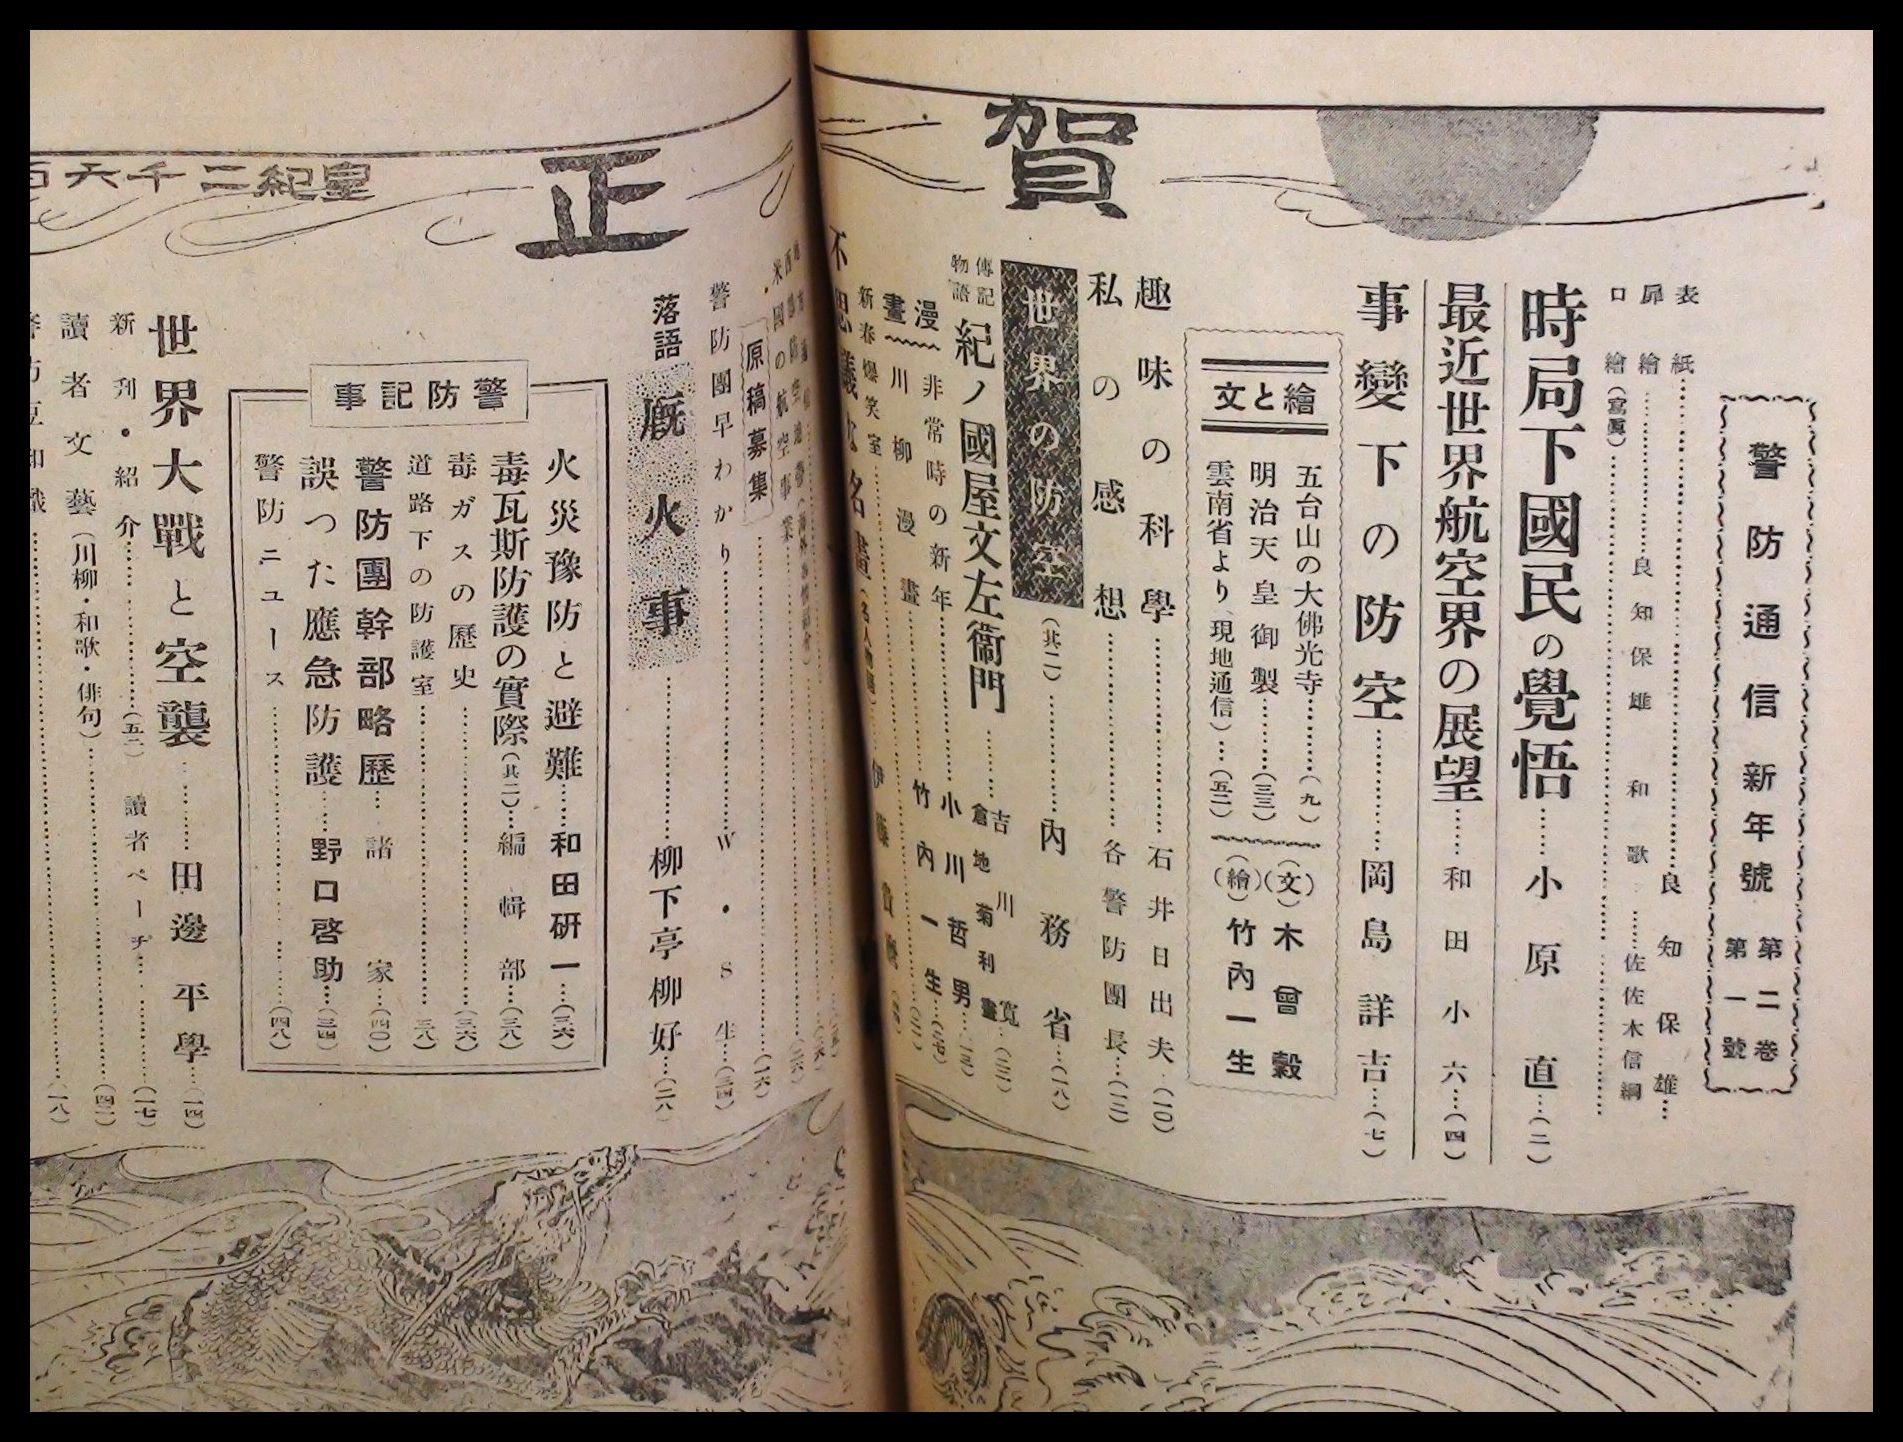 賀正
皇紀二千六百
警防通信新年號
第二卷
第一號
表紙……良知保雄…
扉繪……良知保雄
和歌……佐佐木信綱
口繪(寫眞)……
時局下國民の覺悟……小原直…(二)
最近世界航空界の展望……和田小六…(四)
事變下の防空……岡島詳吉…(七)
繪と文
五台山の大佛光寺……(九)
明治天皇御製……(三三)
雲南省より(現地通信)…(五二)
(文)木曾穀
(繪)竹內一生
趣味の科學……石井日出夫…(一〇)
私の感想……各警防團長…(一二)
世界の防空(其二)……內務省…(一八)
傳記物語
紀ノ國屋文左衞門……吉川寬
倉地菊利畫…(三二)
漫畫
非常時の新年……小川哲男
川柳漫畫……竹內一生
新春爆笑室……
原稿募集……(一六)
警防團早わかり……W・S生…(二四)
落語
厩火事……柳下亭柳好…(二八)
警防記事
火災豫防と避難……和田研一…(三六)
毒瓦斯防護の實際(其二)…編輯部…(三八)
毒ガスの歷史……(三六)
道路下の防護室……三八)
警防團幹部略歷…諸家…(四〇)
誤つた應急防護……野口啓助…(三四)
警防ニュース……(四八)
世界大戰と空襲……田邊平學…(一四)
新刊・紹介……(五二)
讀者ページ……(一七)
讀者文藝(川柳・和歌・俳句)……(四二)
警防豆知識……(一八)